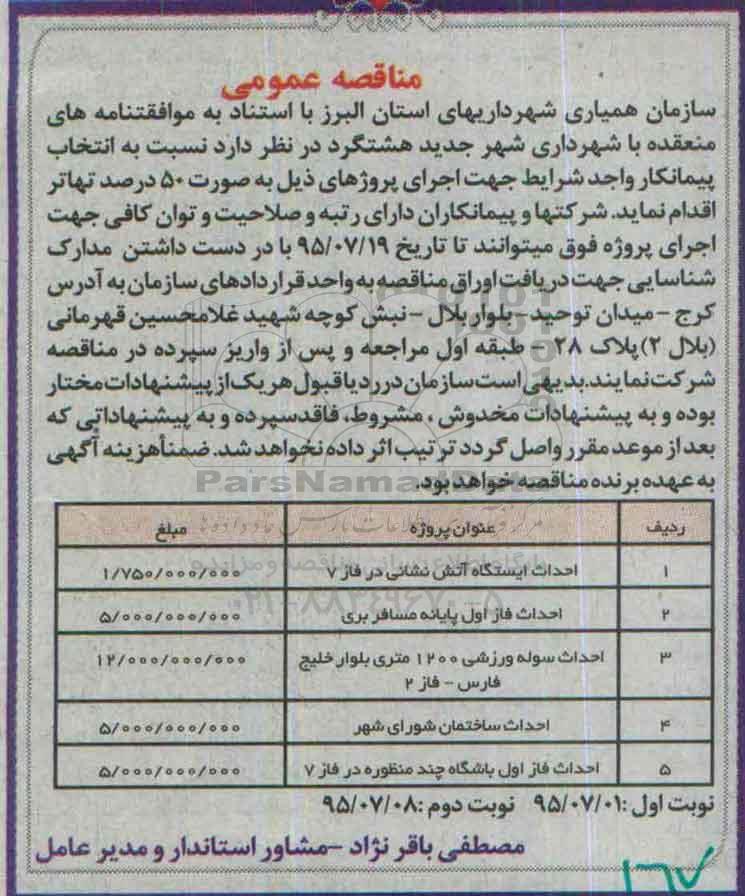 مناقصه عمومی
سازمان همیاری شهرداریهای استان البرز با استناد به موافقتنامه های
منعقده با شهرداری شهر جدید هشتگرد در نظر دارد نسبت به انتخاب
پیمانکار واجد شرایط جهت اجرای پروژهای ذیل به صورت ۵۰ درصد تهاتر
اقدام نماید. شرکتها و پیمانکاران دارای رتبه و صلاحیت و توان کافی جهت
اجرای پروژه فوق میتوانند تا تاریخ ۹۵/۰۷/۱۹ با در دست داشتن مدارک
شناسایی جهت دریافت اوراق مناقصه به واحد قراردادهای سازمان به آدرس
کرج - میدان توحید - بلوار بلال - نبش کوچه شهید غلامحسین قهرمانی
(بلال ۲) پلاک ۲۸ - طبقه اول مراجعه و پس از واریز سپرده در مناقصه
شرکت نمایند. بدیهی است سازمان در رد یا قبول هر یک از پیشنهادات مختار
بوده و به پیشنهادات مخدوش ، مشروط، فاقد سپرده و به پیشنهاداتی که
بعد از موعد مقرر واصل گردد ترتیب اثر داده نخواهد شد. ضمناً هزینه آگهی
به عهده برنده مناقصه خواهد بود.
ParsNamadData
ردیف عنوان پروژه مبلغ
۱ احداث ایستگاه آتش نشانی در فاز ۷ ۱/۷۵۰/۰۰۰/۰۰۰
۲ احداث فاز اول پایانه مسافر بری ۵/۰۰۰/۰۰۰/۰۰۰
۳ احداث سوله ورزشی ۱۲۰۰ متری بلوار خلیج ۱۲/۰۰۰/۰۰۰/۰۰۰
فارس - فاز ۲
۴ احداث ساختمان شورای شهر ۵/۰۰۰/۰۰۰/۰۰۰
۵ احداث فاز اول باشگاه چند منظوره در فاز ۷ ۵/۰۰۰/۰۰۰/۰۰۰
۰۲۱-۸۸۳۴۹۶۷۰-۵
نوبت اول :۹۵/۰۷/۰۱ نوبت دوم :۹۵/۰۷/۰۸
مصطفی باقر نژاد - مشاور استاندار و مدیر عامل
۱۶۷